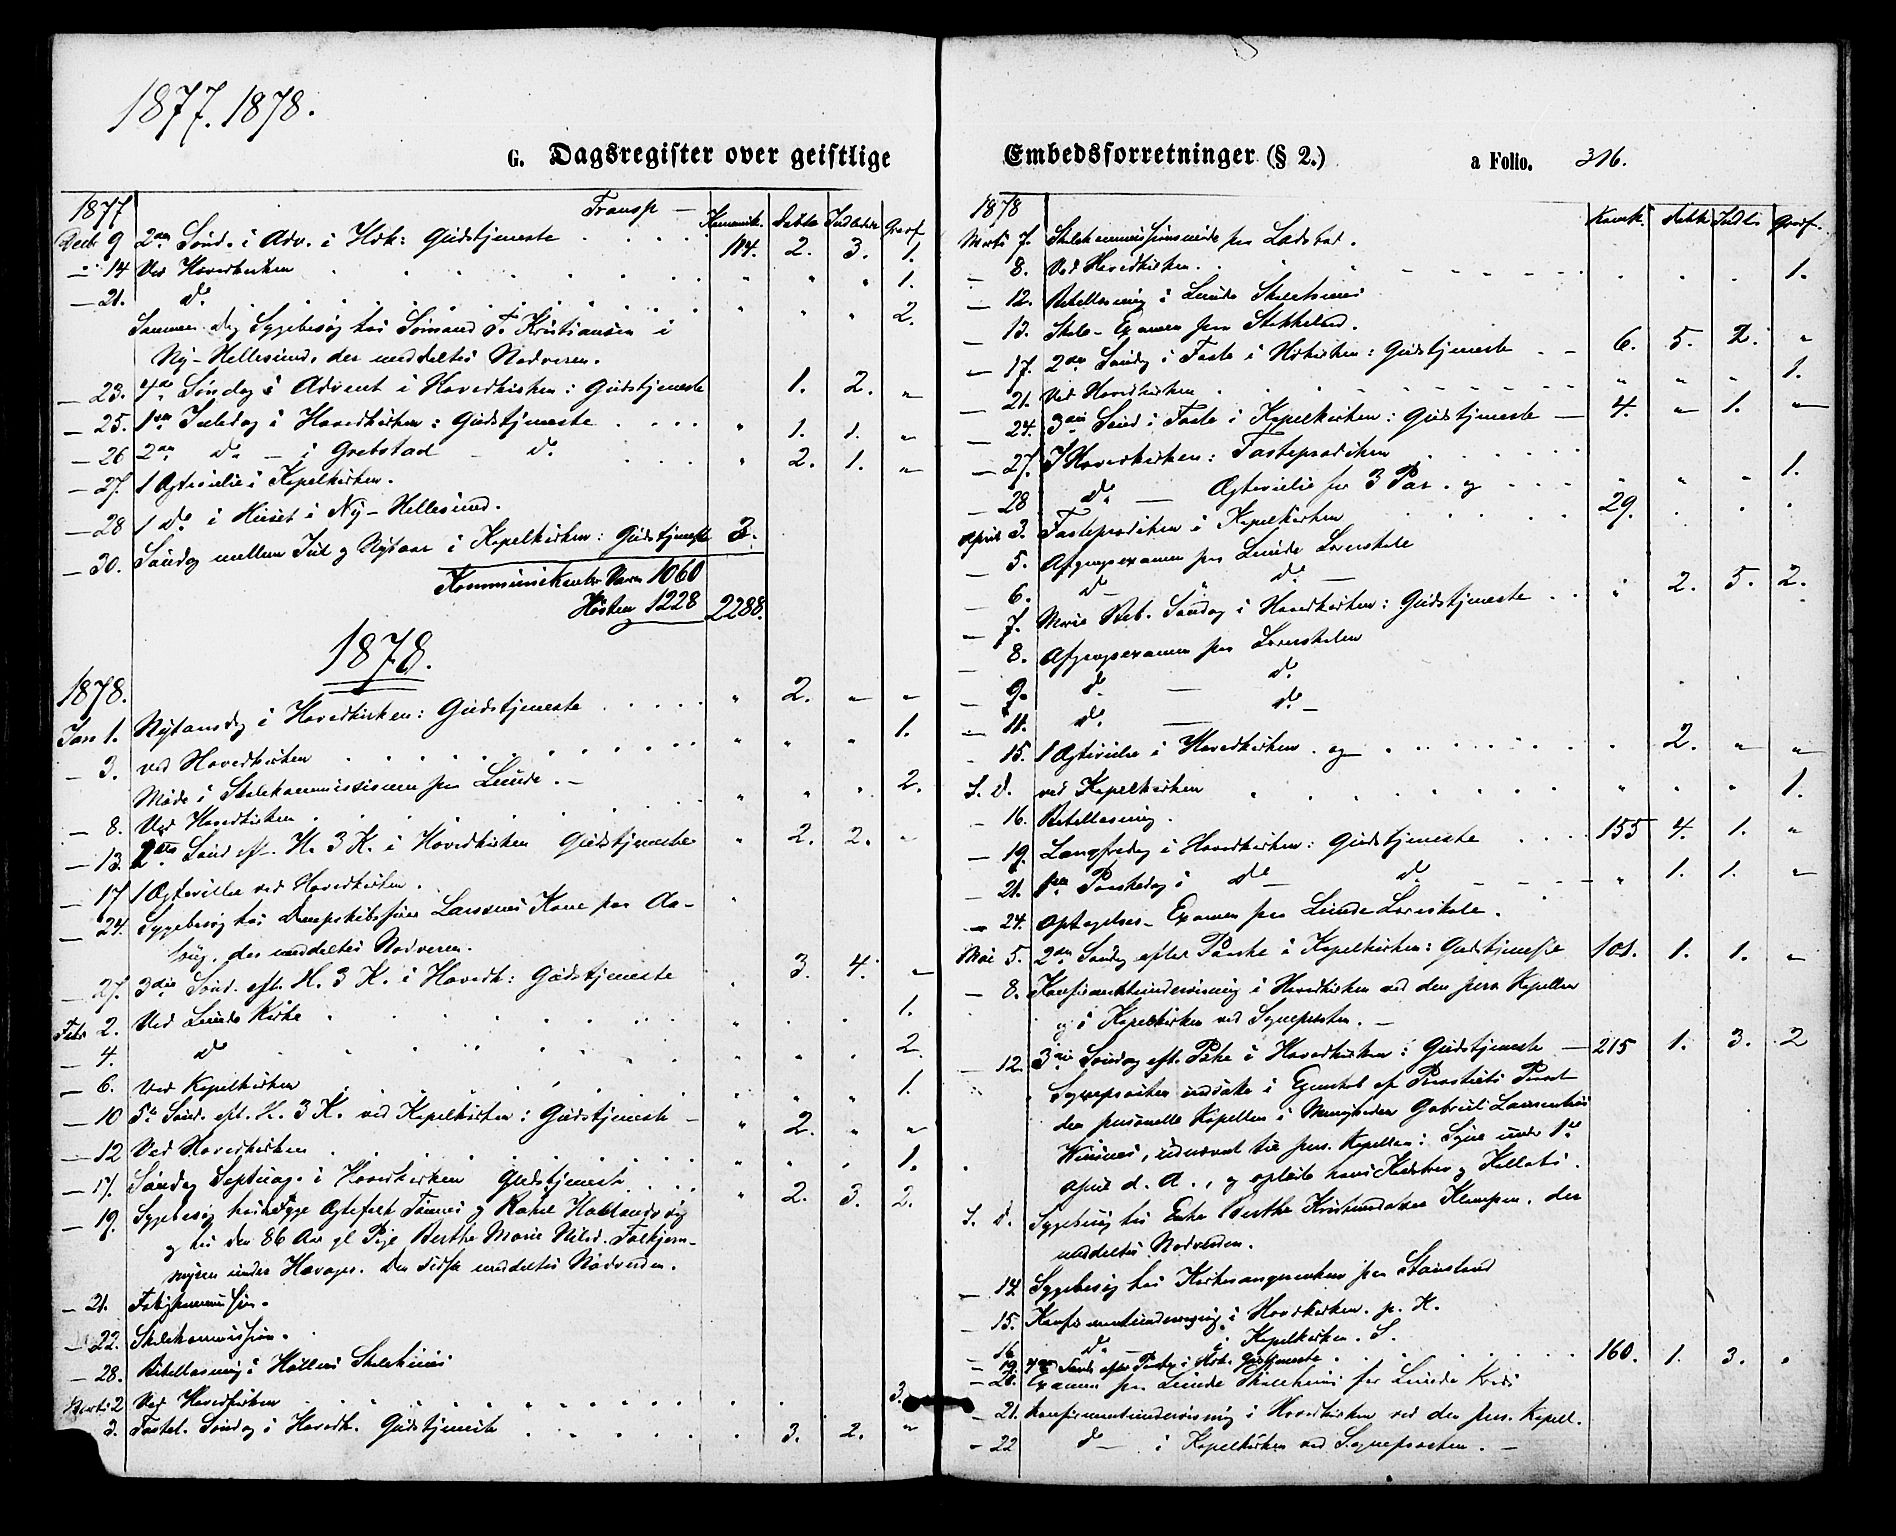 1877. 1878.
G. Dagsregister over geistlige
1877 Transp — Kommunik. Døbte Indledte Græsf
Decb 9 2den Sønd. i Adv. i Hvk: Gudstjeneste 114. 2. 3. 1.
— 14 Ved Hovedkirken " " " 1.
— 21. do " " " 2.
Samme Dag Sygebesøg hos Sømand T. Kristiansen i
Ny-Hellesund, der meddeltes Nadveren.
— 23. 4de Søndag i Advent i Hovedkirken: Gudstjeneste 1. 2. "
— 25. 1ste Juledag i Hovedkirken: Gudstjeneste " 1. 1. "
— 26 2den do — i Grebstad — do " 2. 1. "
— 27. 1 Ægtevielse i Kapelkirken.
— 28 1 do i Huset i Ny-Hellesund.
— 30. Søndag mellem Jul og Nytaar i Kapelkirken: Gudstjeneste 3.
Kommunikanter Vaaren 1060
Høsten 1228 2288.
1878.
1878.
Jan 1. Nytaarsdag i Hovedkirken: Gudstjeneste " 2. " "
— 3. ved Hovedkirken " " " 1.
Møde i Skolekommissionen paa Lunde. —
— 8. Ved Hovedkirken " " " 2.
— 13. Sønd eft. H. 3 K. i Hovedkirken Gudstjeneste " 2. 2. "
— 17 1 Ægtevielse ved Hovedkirken.
— 24. Sygebesøg hos Dampskibsfører Larsens Kone paa
der meddeltes Nadveren.
— 27. 3die Sønd. eft. H. 3 K. i Hovedk: Gudstjeneste 3. 4. "
Febr 2. Ved Lunde Kirke 1.
— 4. do " " " 2.
— 6. Ved Kapelkirken " " " 1.
— 10 5te Sønd. eft. H. 3 K. ved Kapelkirken: Gudstjeneste — " 2. " "
— 12 Ved Hovedkirken " " " 1.
— 17. Søndag Septuag. i Hovedkirken Gudstjeneste " 2. 3. 2.
— 19. Sygebesøg hos Ægtefolk Tønnes og Rakel
og hos den 86 Aar gl Pige Berthe Marie Nilsd.
under Havager. Den sidste meddeltes Nadveren.
— 21. Fattigkommission.
— 22. Skolekommission.
— 28. Bibellæsning i Høllens Skolehuus
Marts 2 Ved Hovedkirken 3.
3. Fastel. Søndag i Hovedk. Gudstjeneste 3. 2. "
Embedsforretninger (§ 2.) a Folio. 316.
1878 Komk. døbte Indl. Græsf.
Marts 7. Skolekommissionsmøde paa Ladstad.
— 8. Ved Hovedkirken. 1.
— 12. Bibellæsning i Lunde Skolehuus
— 13. Skole-Examen paa Stokkeland.
— 17. 2den Søndag i Faste i Hvkirken: Gudstjeneste — 6. 5. 2. "
— 21. Ved Hovedkirken " " " 1.
— 24. 3die Sønd i Faste i Kapelkirken: Gudstjeneste — 4. " 1. "
— 27. I Hovedkirken: Fasteprædiken
— 28 do — Ægtevielse for 3 Par. og " " " 1.
April 3. Fasteprædiken i Kapelkirken 29.
— 5. Afgangsexamen paa Lunde Lærerskole
— 6. do " do —
— 7. Mariæ Beb. Søndag i Hovedkirken: Gudstjeneste " 2. 5. 2.
— 8. Afgangsexamen paa Lærerskolen
— 9. do — do
— 11. do — do —
— 15. 1 Ægtevielse i Hovedkirken. og " 2. " "
S. D. ved Kapelkirken " " " 1.
— 16. Bibellæsning.
— 19. Langfredag i Hovedkirken: Gudstjeneste 155 4. 1. "
— 21. 1ste Paaskedag i do — do " 1. 1. "
— 24. Optagelses-Examen paa Lunde Lærerskole.
Mai 5. 2den Søndag efter Paaske i Kapelkirken: Gudstjeneste 101. 1. 1. "
— 8. Konfirmantundervisning i Hovedkirken ved den pers. Kapellan
og i Kapelkirken ved Sognepresten. —
— 12. 3die Søndag eft. Paaske i Hovedkirken: Gudstjeneste — 215 1. 3. 2
Sognepresten indsatte i Egenskab af Provstiets Provst
den personelle Kapellan i Menigheden Gabriel
udnævnt til pers. Kapellan i Sogne under 1ste
April d. A., og oplæste hans Kaldsbrev og Kollats.
S. D. Sygebesøg hos Enke Berthe Klempen, der
meddeltes Nadveren.
— 14 Sygebesøg hos Kirkesangerenken paa
— 15. Konfirmantundervisning i Hovedkirken. p. K.
— 16 do — i Kapelkirken. S.
— 19. 4de Sønd. efter Paaske i Hvk. Gudstjeneste 160. 1. 3. "
— 20. Examen paa Lunde Skolehuus for Lunde Kreds
— 21. Konfirmantundervisning i Hovedkirken ved den pers. Kapell.
— 22 do — i Kapelkirken ved Sognepresten. —